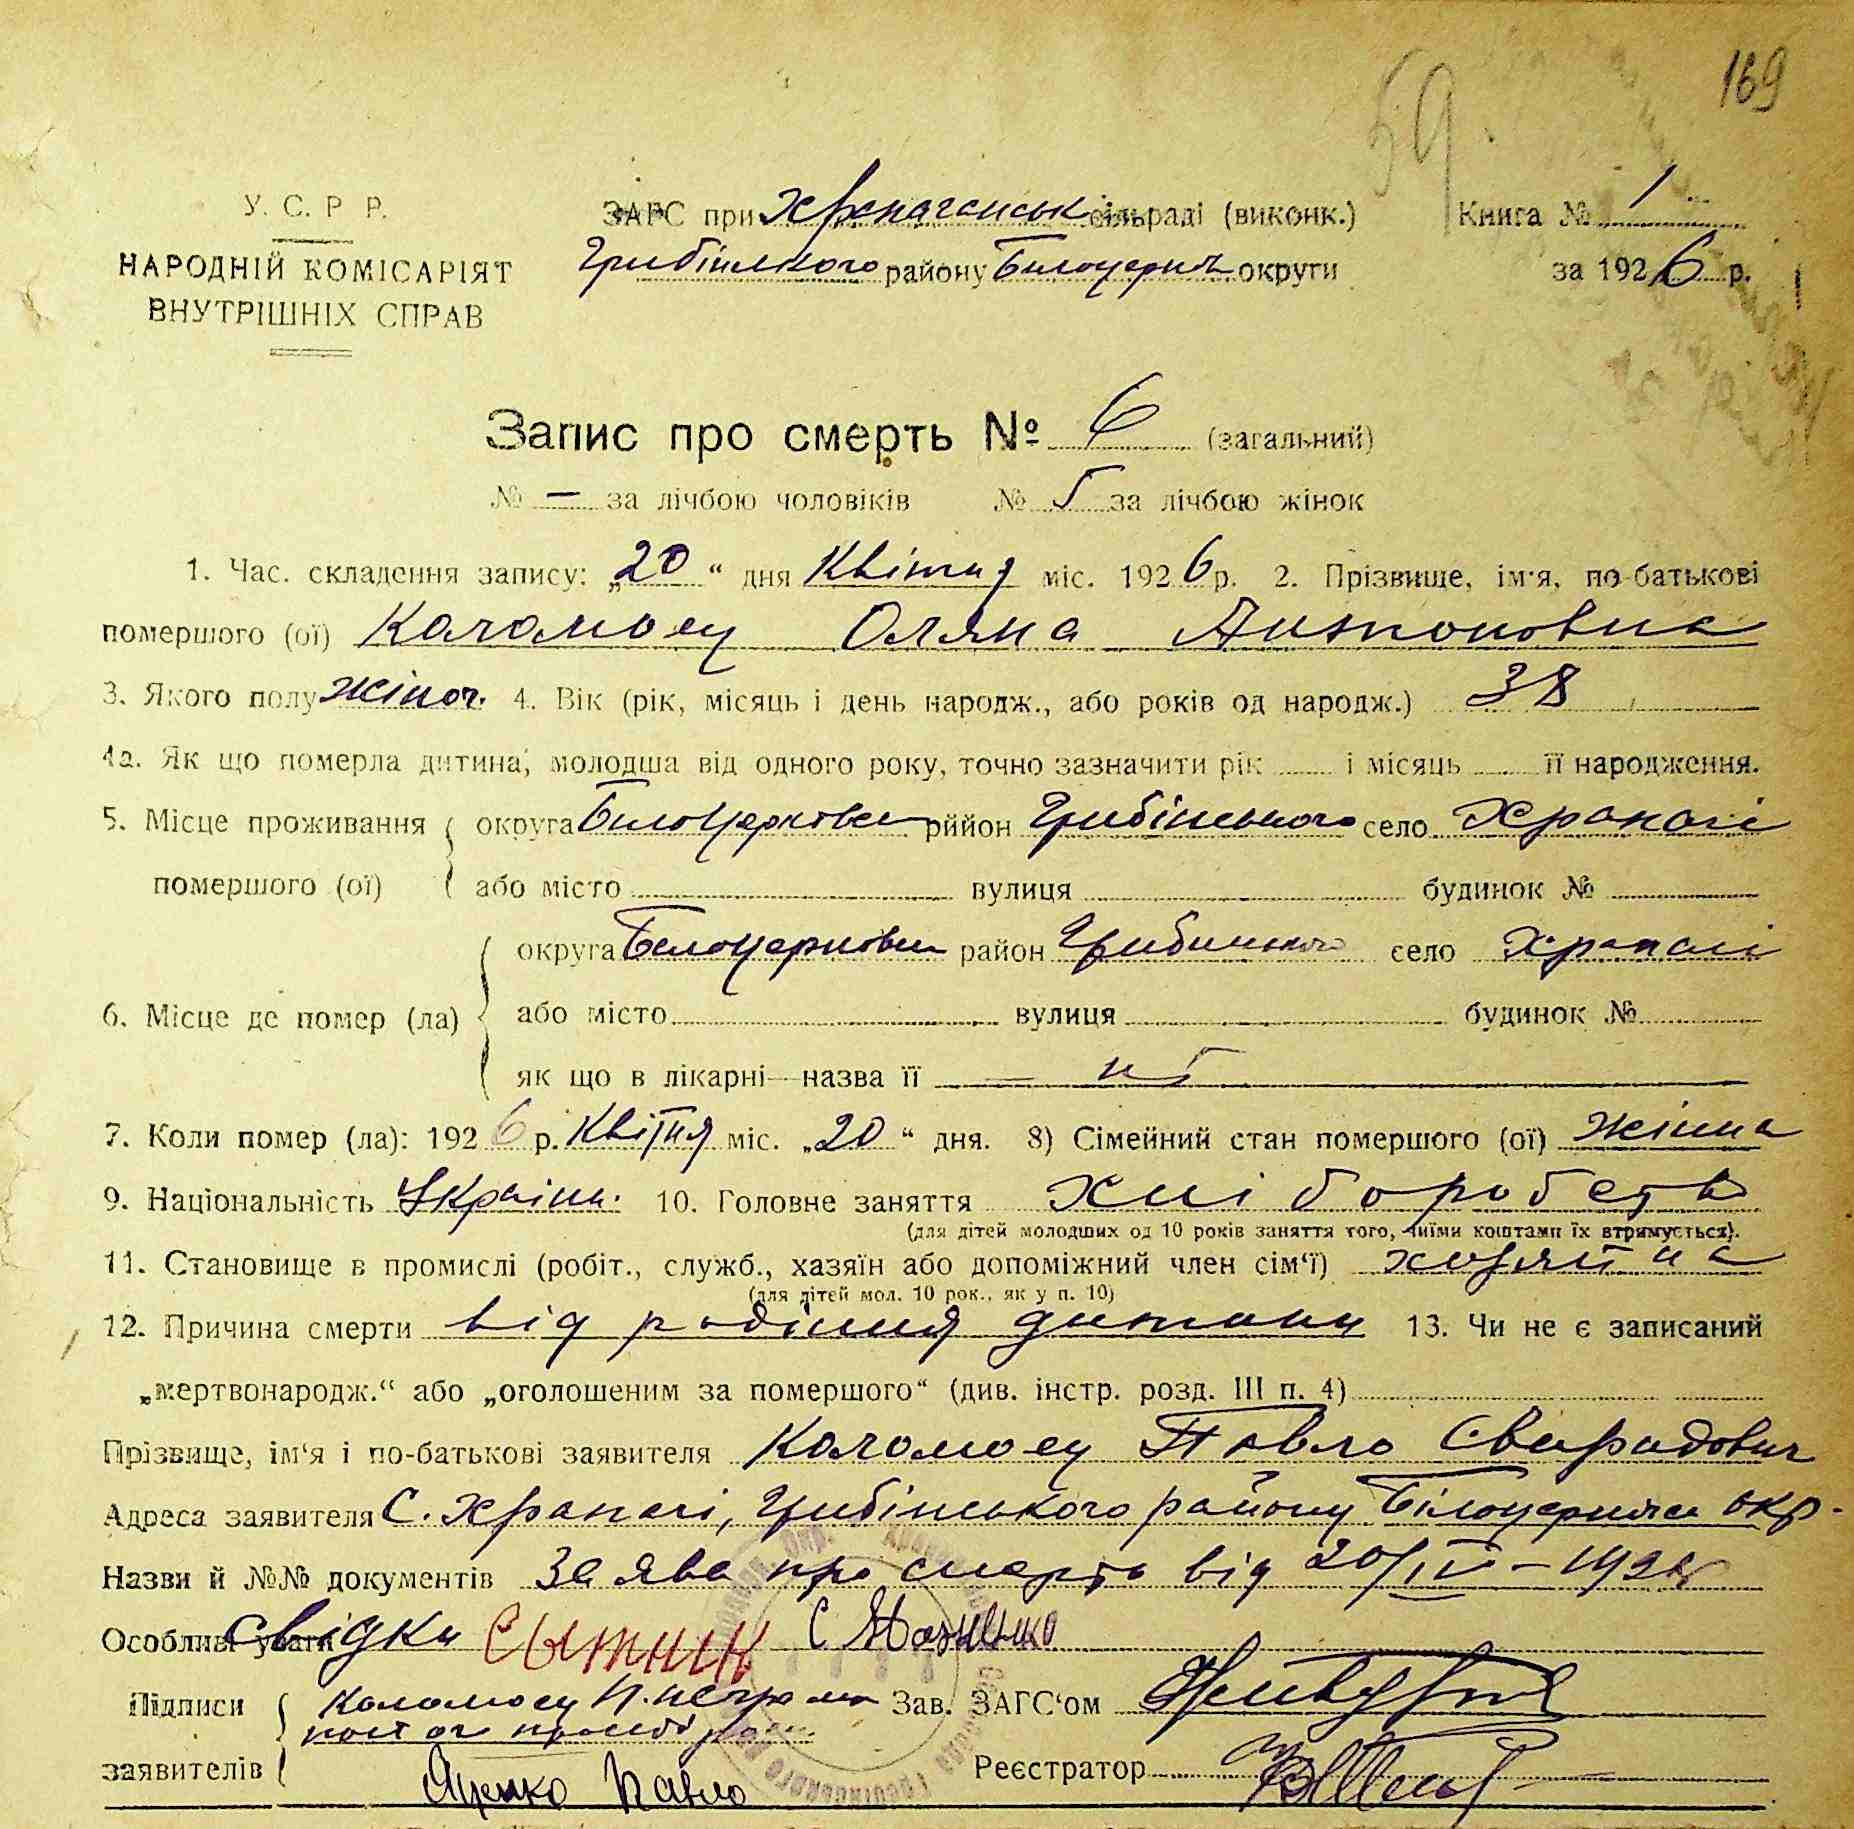 169
59.
У. С. Р Р.
НАРОДНІЙ КОМІСАРІЯТ
ВНУТРІШНІХ СПРАВ
ЗАГС при Храпаченськ сільраді (виконк.)
Гребінського району Білоцерків округи
Книга № 1
за 1926 р.
Запис про смерть № 6 (загальний)
№ — за лічбою чоловіків № 5 за лічбою жінок
1. Час. складення запису: „20“ дня Квітня міс. 1926 р. 2. Прізвище, ім'я, по-батькові
помершого (ої) Коломоец Оляна Антоновна
3. Якого полу жіноч. 4. Вік (рік, місяць і день народж., або років од народж.) 38
4а. Як що померла дитина, молодша від одного року, точно зазначити рік і місяць її народження.
5. Місце проживання помершого (ої)
округа Білоцерковск рййон Гребінського село Храпачі
або місто вулиця будинок №
6. Місце де помер (ла)
округа Белоцерковск район Гребинського село Храпачі
або місто вулиця будинок №
як що в лікарні—назва її —
7. Коли помер (ла): 1926 р. Квітня міс. „20“ дня. 8) Сімейний стан помершого (ої) жінна
9. Національність Україн. 10. Головне заняття хліборобств
(для дітей молодших од 10 років заняття того, чиїми коштами їх втримується).
11. Становище в промислі (робіт., служб., хазяїн або допоміжний член сім‘ї) хозяйна
(для дітей мол. 10 рок., як у п. 10)
12. Причина смерти від родіння дитини 13. Чи не є записаний
„мертвонародж.“ або „оголошеним за помершого“ (див. інстр. розд. III п. 4)
Прізвище, ім‘я і по-батькові заявителя Коломоец Павло Свиридович
Адреса заявителя С. Храпачі, Гребінського району Білоцерківск окр.
Назви й №№ документів Заява про смерть від 20/IV—1926
Особливі уваги Свідки Сытник С
Підписи заявителів
Коломоец П. неграмо
Яценко Павло
Зав. ЗАГС‘ом
Реєстратор